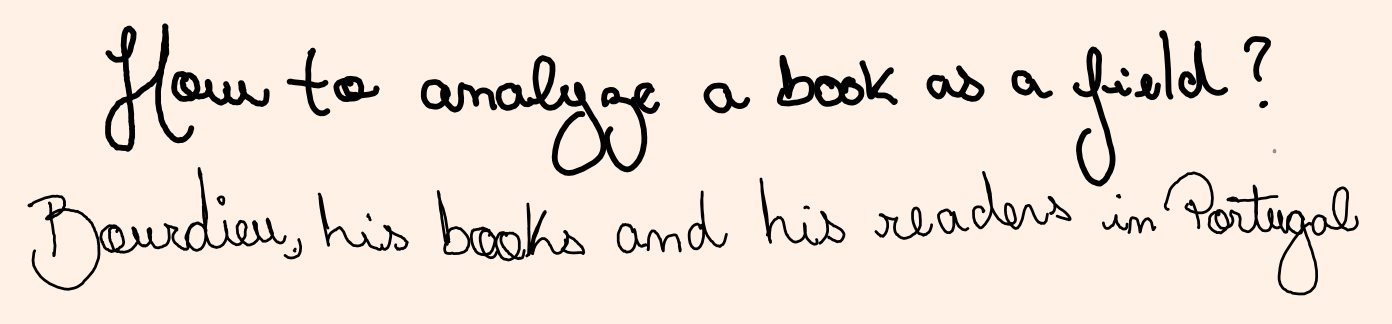 How to analyze a book as a field?
Bourdieu, his books and his readers in Portugal